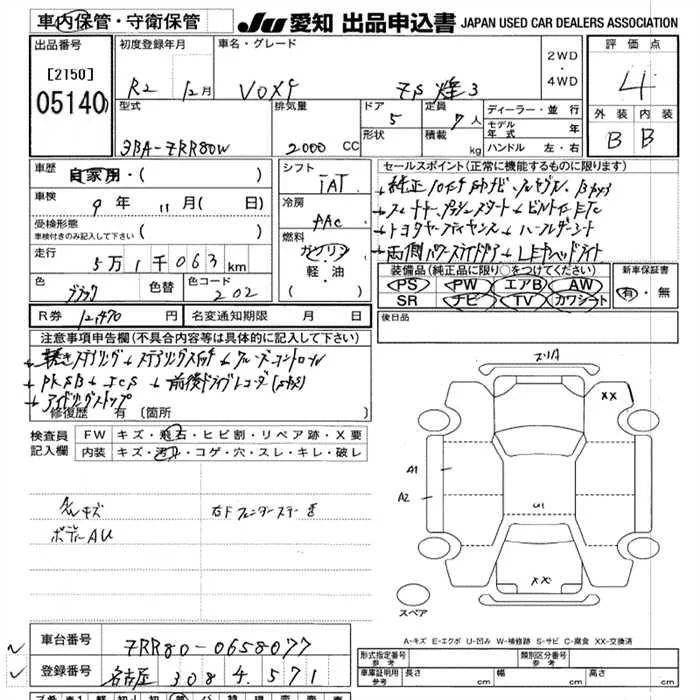 車内保管・守衛保管
JU 愛知 出品申込書 JAPAN USED CAR DEALERS ASSOCIATION
出品番号 初度登録年月 車名・グレード 2WD・4WD 評価点
[2150]
05140
R2 12月 VOXY ZS 煌3 4
型式 排気量 ドア 定員 ディーラー・並行 外装 内装
3BA-ZRR80W 2000 CC 5 7人 モデル年式 年 B B
形状 積載 kg ハンドル 左・右
車歴 自家用・( )
シフト セールスポイント(正常に機能するものに限ります)
IAT
車検 9年 11月( 日)
冷房
AAC
受検形態 車検付きのみ記入して下さい ( )
燃料
ガソリン・軽・油
走行 5万1千063km
色 ブラック 色替 色コード 202
R券 12,470円 名変通知期限 月 日
純正10インチSDナビ
プッシュスタート ビルトインETC
両側パワースライドドア LEDヘッドライト
装備品(純正品に限り○をつけてください) 新車保証書
PS PW エアB AW 有・無
SR ナビ TV カワシート
後日品
注意事項申告欄(不具合箇所等は具体的に記入して下さい)
ステアリングスイッチ クルーズコントロール
前後ドライブレコーダー
アイドリングストップ
修復歴 有 〔箇所 〕
検査員記入欄 FW キズ・飛石・ヒビ割・リペア跡・X要
内装 キズ・汚れ・コゲ・穴・スレ・キレ・破レ
AWキズ
ボディーAU
右Fフェンダーステー
ズリA
XX
A1
A2
U1
XX
スペア
A-キズ E-エクボ U-凹み W-補修跡 S-サビ C-腐食 XX-交換済
車台番号 ZRR80-0658077
登録番号 名古屋 308 4571
形式指定番号 参考 類別区分番号 参考
車庫証明用 参考 長さ cm 幅 cm 高さ cm